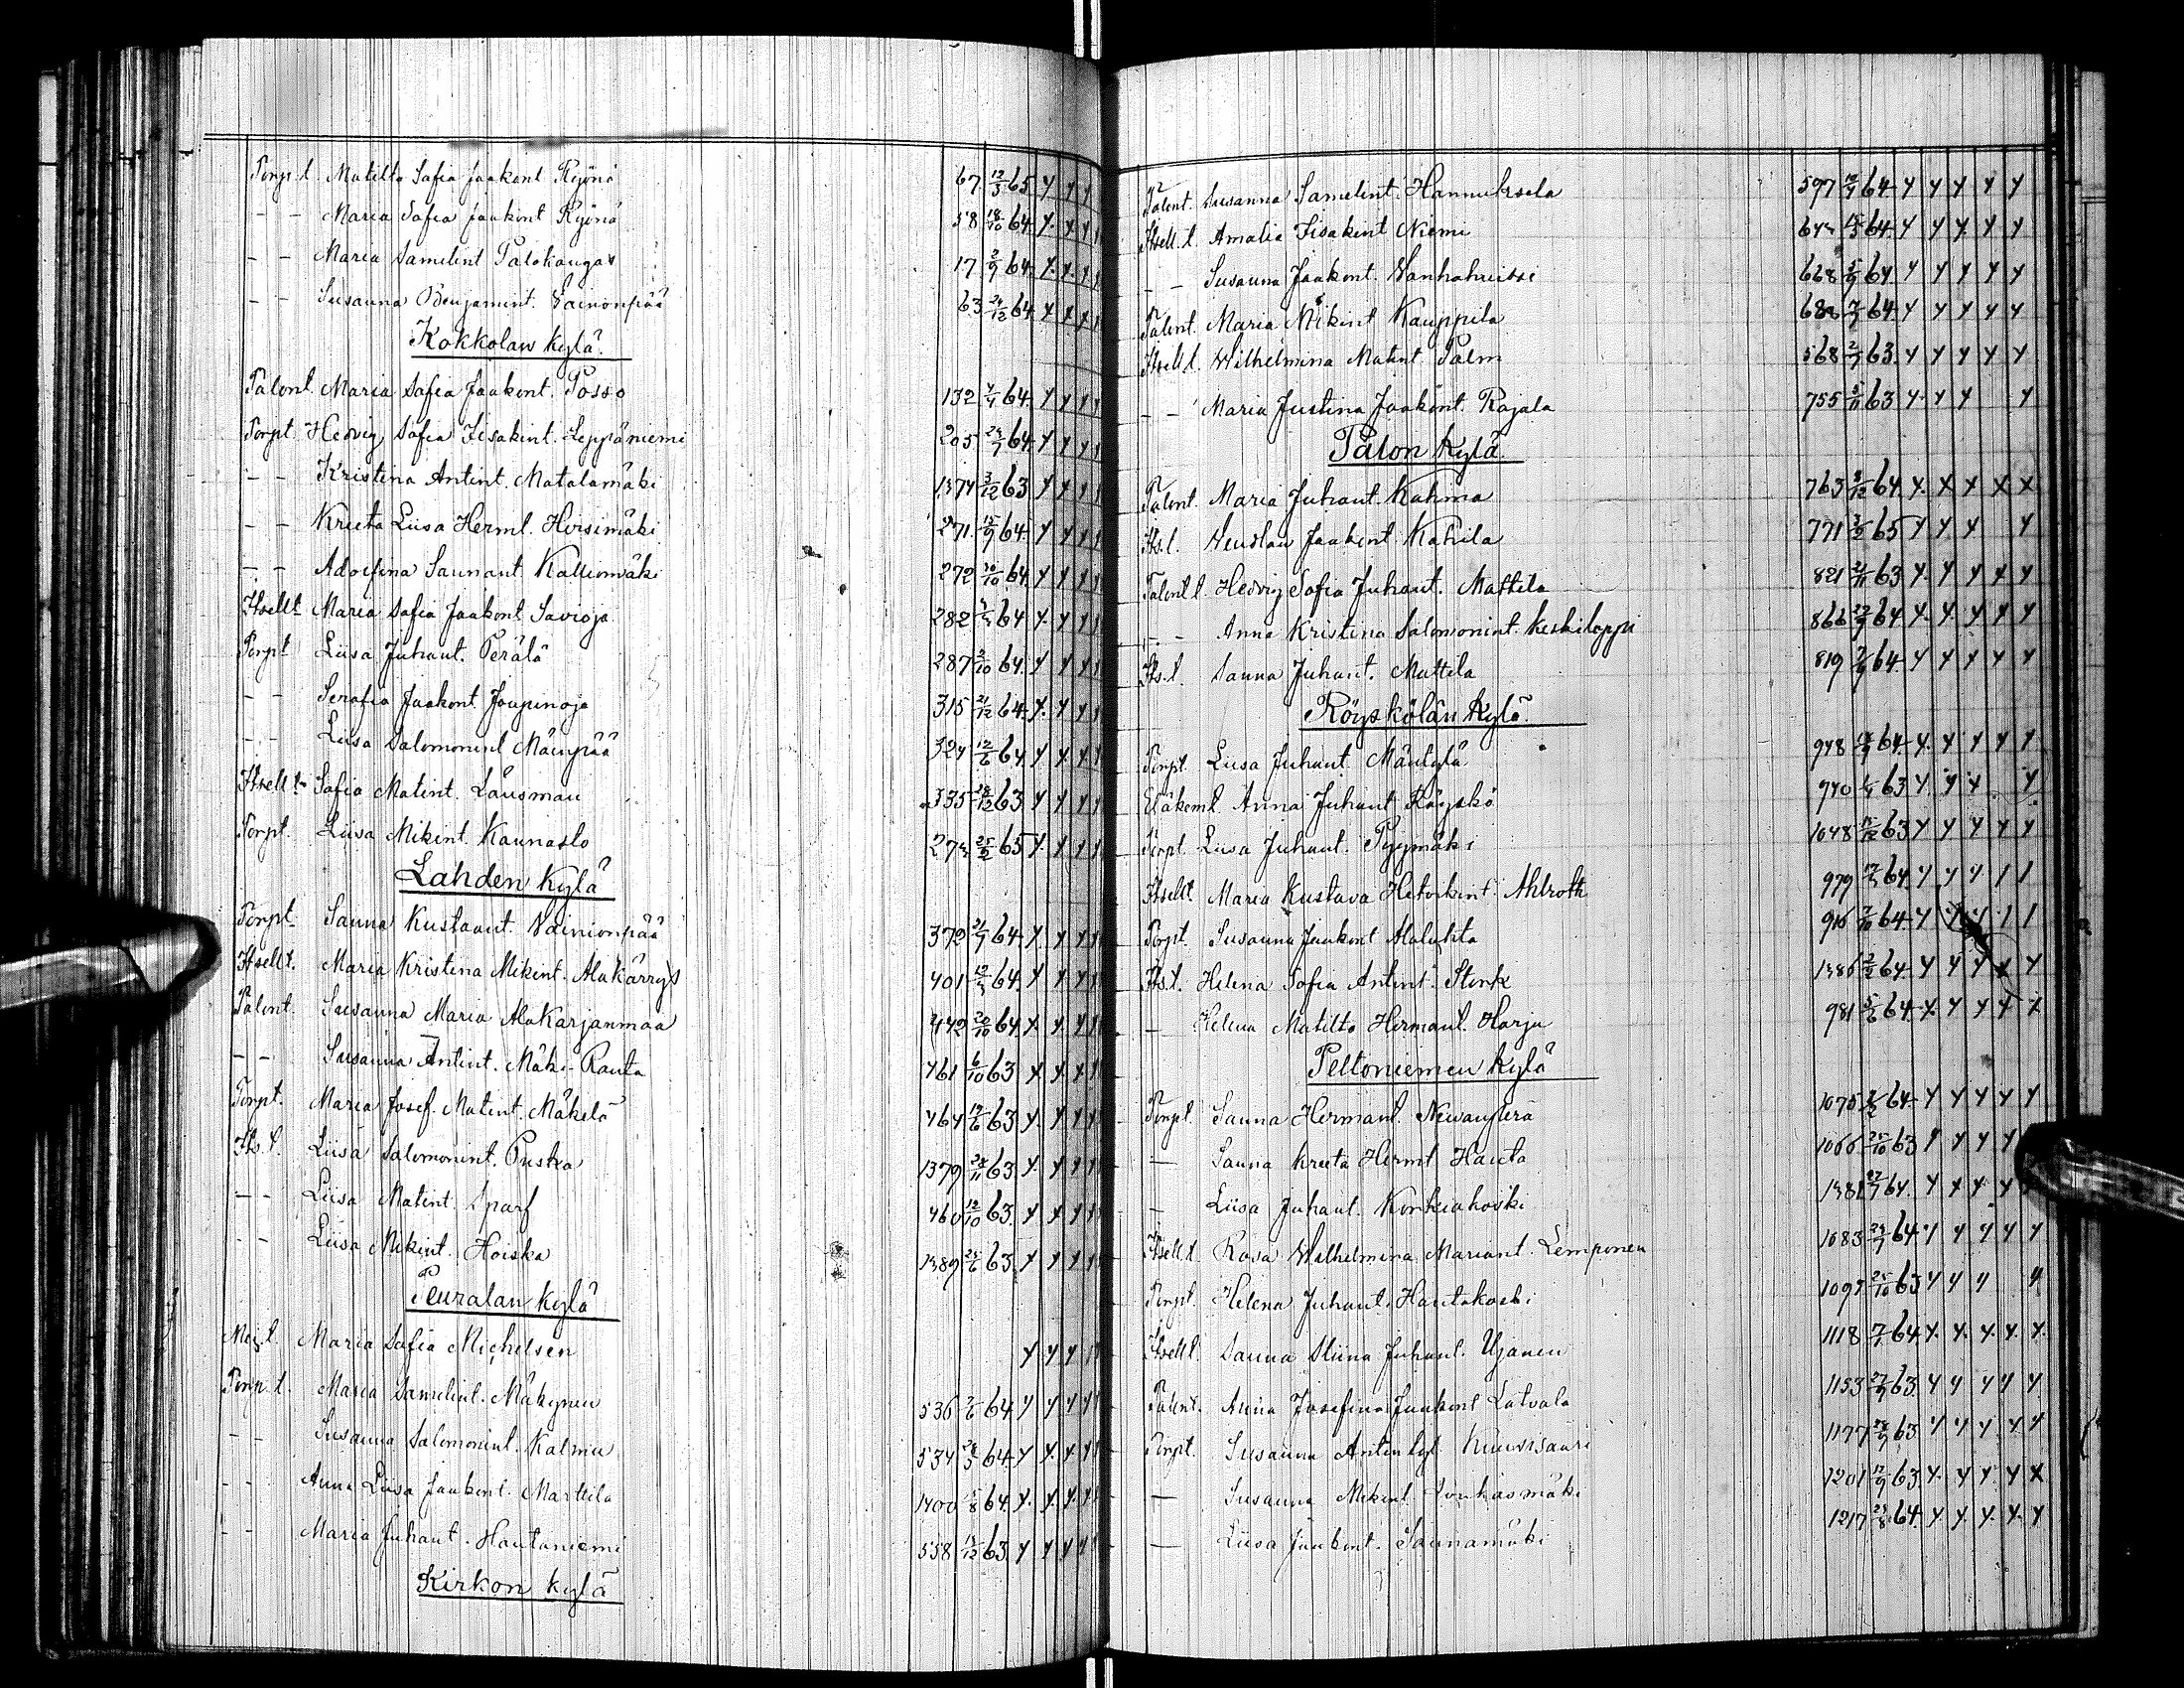 Torp.t. Matilta Safia Jaakont. Ryönä 67 12/3 65 y y y
- - Maria Safia Jaakont Ryönä 58 18/10 64 y y y y
- - Maria Samelint Palokangas 17 2/9 64 y. y. y y
- - Susanna Benjamint. Vainonpää 63 24/12 64 y y y y
Kokkolan kylä.
Talont. Maria Safia Jaakont. Posso 132 4/4 64. y y y y
Torpt. Hedvig Sofia Iisakint. Leppäniemi 205 24/7 64. y y y y
- - Kristina Antint. Matalamäki 1374 3/12 63 y y y y
- - Kreeta Liisa Herml. Hirsimäki 271 15/9 64 y y y y
- - Adolfina Saunant Kalliomäki 272 30/10 64. y y y y
Itsellt Maria Safia Jaakont Savioja 282 64 y. y y y
Torpt Liisa Juhant. Perälä 287 2/10 64. y. y y y
- - Serafia Jaakont. Joupinoja 315 21/12 64. y. y y y
- - Liisa Salomonint Mäenpää 324 12/6 64 y y y y
Itsellt Safia Matint. Länsman 335 28/12 63 y y y y
Torpt. Liisa Mikint. Kaunasto 274 25/2 65 y. y y y
Lahden kylä
Torpt. Sanna Kustaant. Vainionpää 372 21/7 64 y. y. y y
Itsellt. Maria Kristina Mikint. Alakärrys 401 64. y y y y
Talont. Susanna Maria AlaKarjanmaa 442 20/10 64. y. y. y y
- - Susanna Antint. Mäki-Rauta 461 6/10 63 y. y. y y
Torpt. Maria Josef. Matint. Mäkelä 464 19/6 63 y. y y y
Its. t. Liisa Salomonint. Puska 1379 24/11 63. y. y y y
- - Liisa Matint. Sparf 460 12/10 63. y y y y
- - Liisa Mikint. Hoiska 1389 25/6 63. y y y y
Peuralan kylä
Mej.t. Maria Safia Michelsen y y y
Torp.t. Maria Samelint. Mäkynen 536 64 y y y y
- - Susanna Salomonint. Kalmu 534 28/5 64 y y. y. y
- - Anna Liisa Jaakont. Marttila 1400 64. y. y. y. y
- - Maria Juhant. Hautaniemi 558 63 y y y y
Kirkon kylä
Talont. Susanna Samelint. Hannuksela 597 64 y y y y y
Itsell.t. Amalia Iisakint Niemi 64. y y y. y y
- - Susanna Jaakont. Vanhahuissi 668 5/9 64. y y y y y
Talont. Maria Mikint Kauppila 688 64 y y y y y
Itsellt. Wilhelmina Matint Palm 568 63. y y y y y
- - Maria Justina Jaakont. Rajala 755 5/11 63 y. y y y
Palon kylä.
Talont. Maria Juhant. Kahma 763 64. y. x y x x
Its.t. Wendlau Jaakont Kahila 771 65 y y y y
Talont t. Hedvig Sofia Juhant. Mattila 821 21/11 63 y. y y y y
- - Anna Kristina Salomonint. Keskiloppi 866 64 y. y. y y y
Its.t. Sanna Juhant. Mattila 819 64. y y y y y
Röyskölän kylä.
Torpt. Liisa Juhant Mäntylä 948 64. y. y y y y
Eläkemt. Anna Juhant Röyskö 940 63 y. y y y
Torpt. Liisa Juhant. Pyymäki 1048 63 y y y y y
Itsellt. Maria Kustava Hetvikint Ahlroth 979 64. y y y / /
Torpt. Susanna Jaakont Alaluhta 916 64. y
Its.t. Helena Sofia Antint. Stork 1386 64 y y y y y
— Helena Matilta Hermant. Harju 981 5/6 64. x y y x x
Peltoniemen kylä
Torpt. Sanna Hermant. Nevanperä 1075 64 y y y y y
— Sanna Kreeta Hermt Hauta 1066 25/10 63 y y y y
— Liisa Juhant. Korkiakoski 1381 64. y y y. y
Itsellt. Rosa Wilhelmina Mariant. Lemponen 1083 29/7 64 y y y y y
Torpt. Helena Juhant. Hautakoski 109 25/10 63 y y y y
Itsellt. Sanna Stiina Juhant. Ujanen 1118 64 y. y. y. y. y.
Talont. Anna Josefina Jaakont Latvala 1153 27/9 63 y y y y y
Torpt. Susanna Antin tyt. Kuuvisaari 1177 63. y y y. y y
— Susanna Mikint. Jouhasmäki 1201 17/9 63 y. y y. y x
— Liisa Jaakont. Saunamäki 1217 29/8 64. y y y. y. y